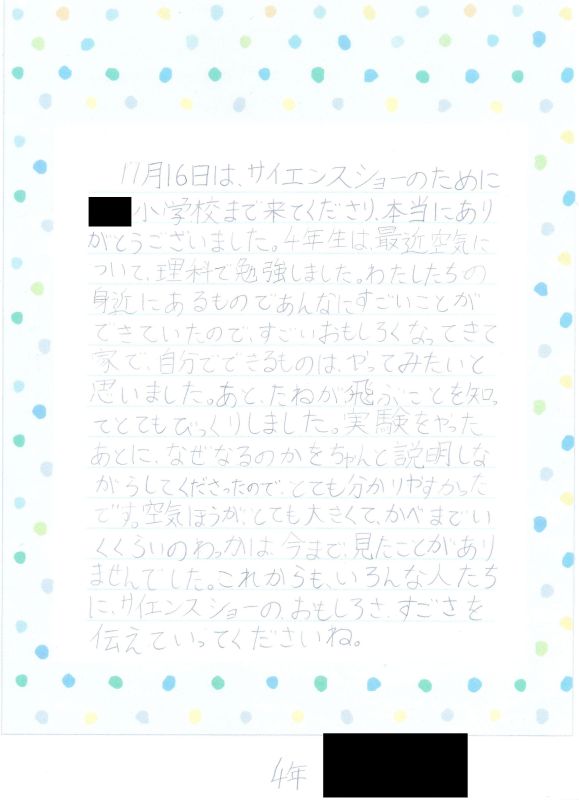 11月16日は、サイエンスショーのために
小学校まで来てくださり、本当にあり
がとうございました。4年生は、最近空気に
ついて、理科で勉強しました。わたしたちの
身近にあるものであんなにすごいことが
できていたので、すごいおもしろくなってきて
家で、自分でできるものは、やってみたいと
思いました。あと、たねが飛ぶことを知っ
てとてもびっくりしました。実験をやった
あとに、なぜなるのかをちゃんと説明しな
がらしてくださったので、とても分かりやすかった
です。空気ほうが、とても大きくて、かべまでい
くくらいのわっかは、今まで、見たことがあり
ませんでした。これからも、いろんな人たち
に、サイエンスショーの、おもしろさ、すごさを
伝えていってくださいね。
4年